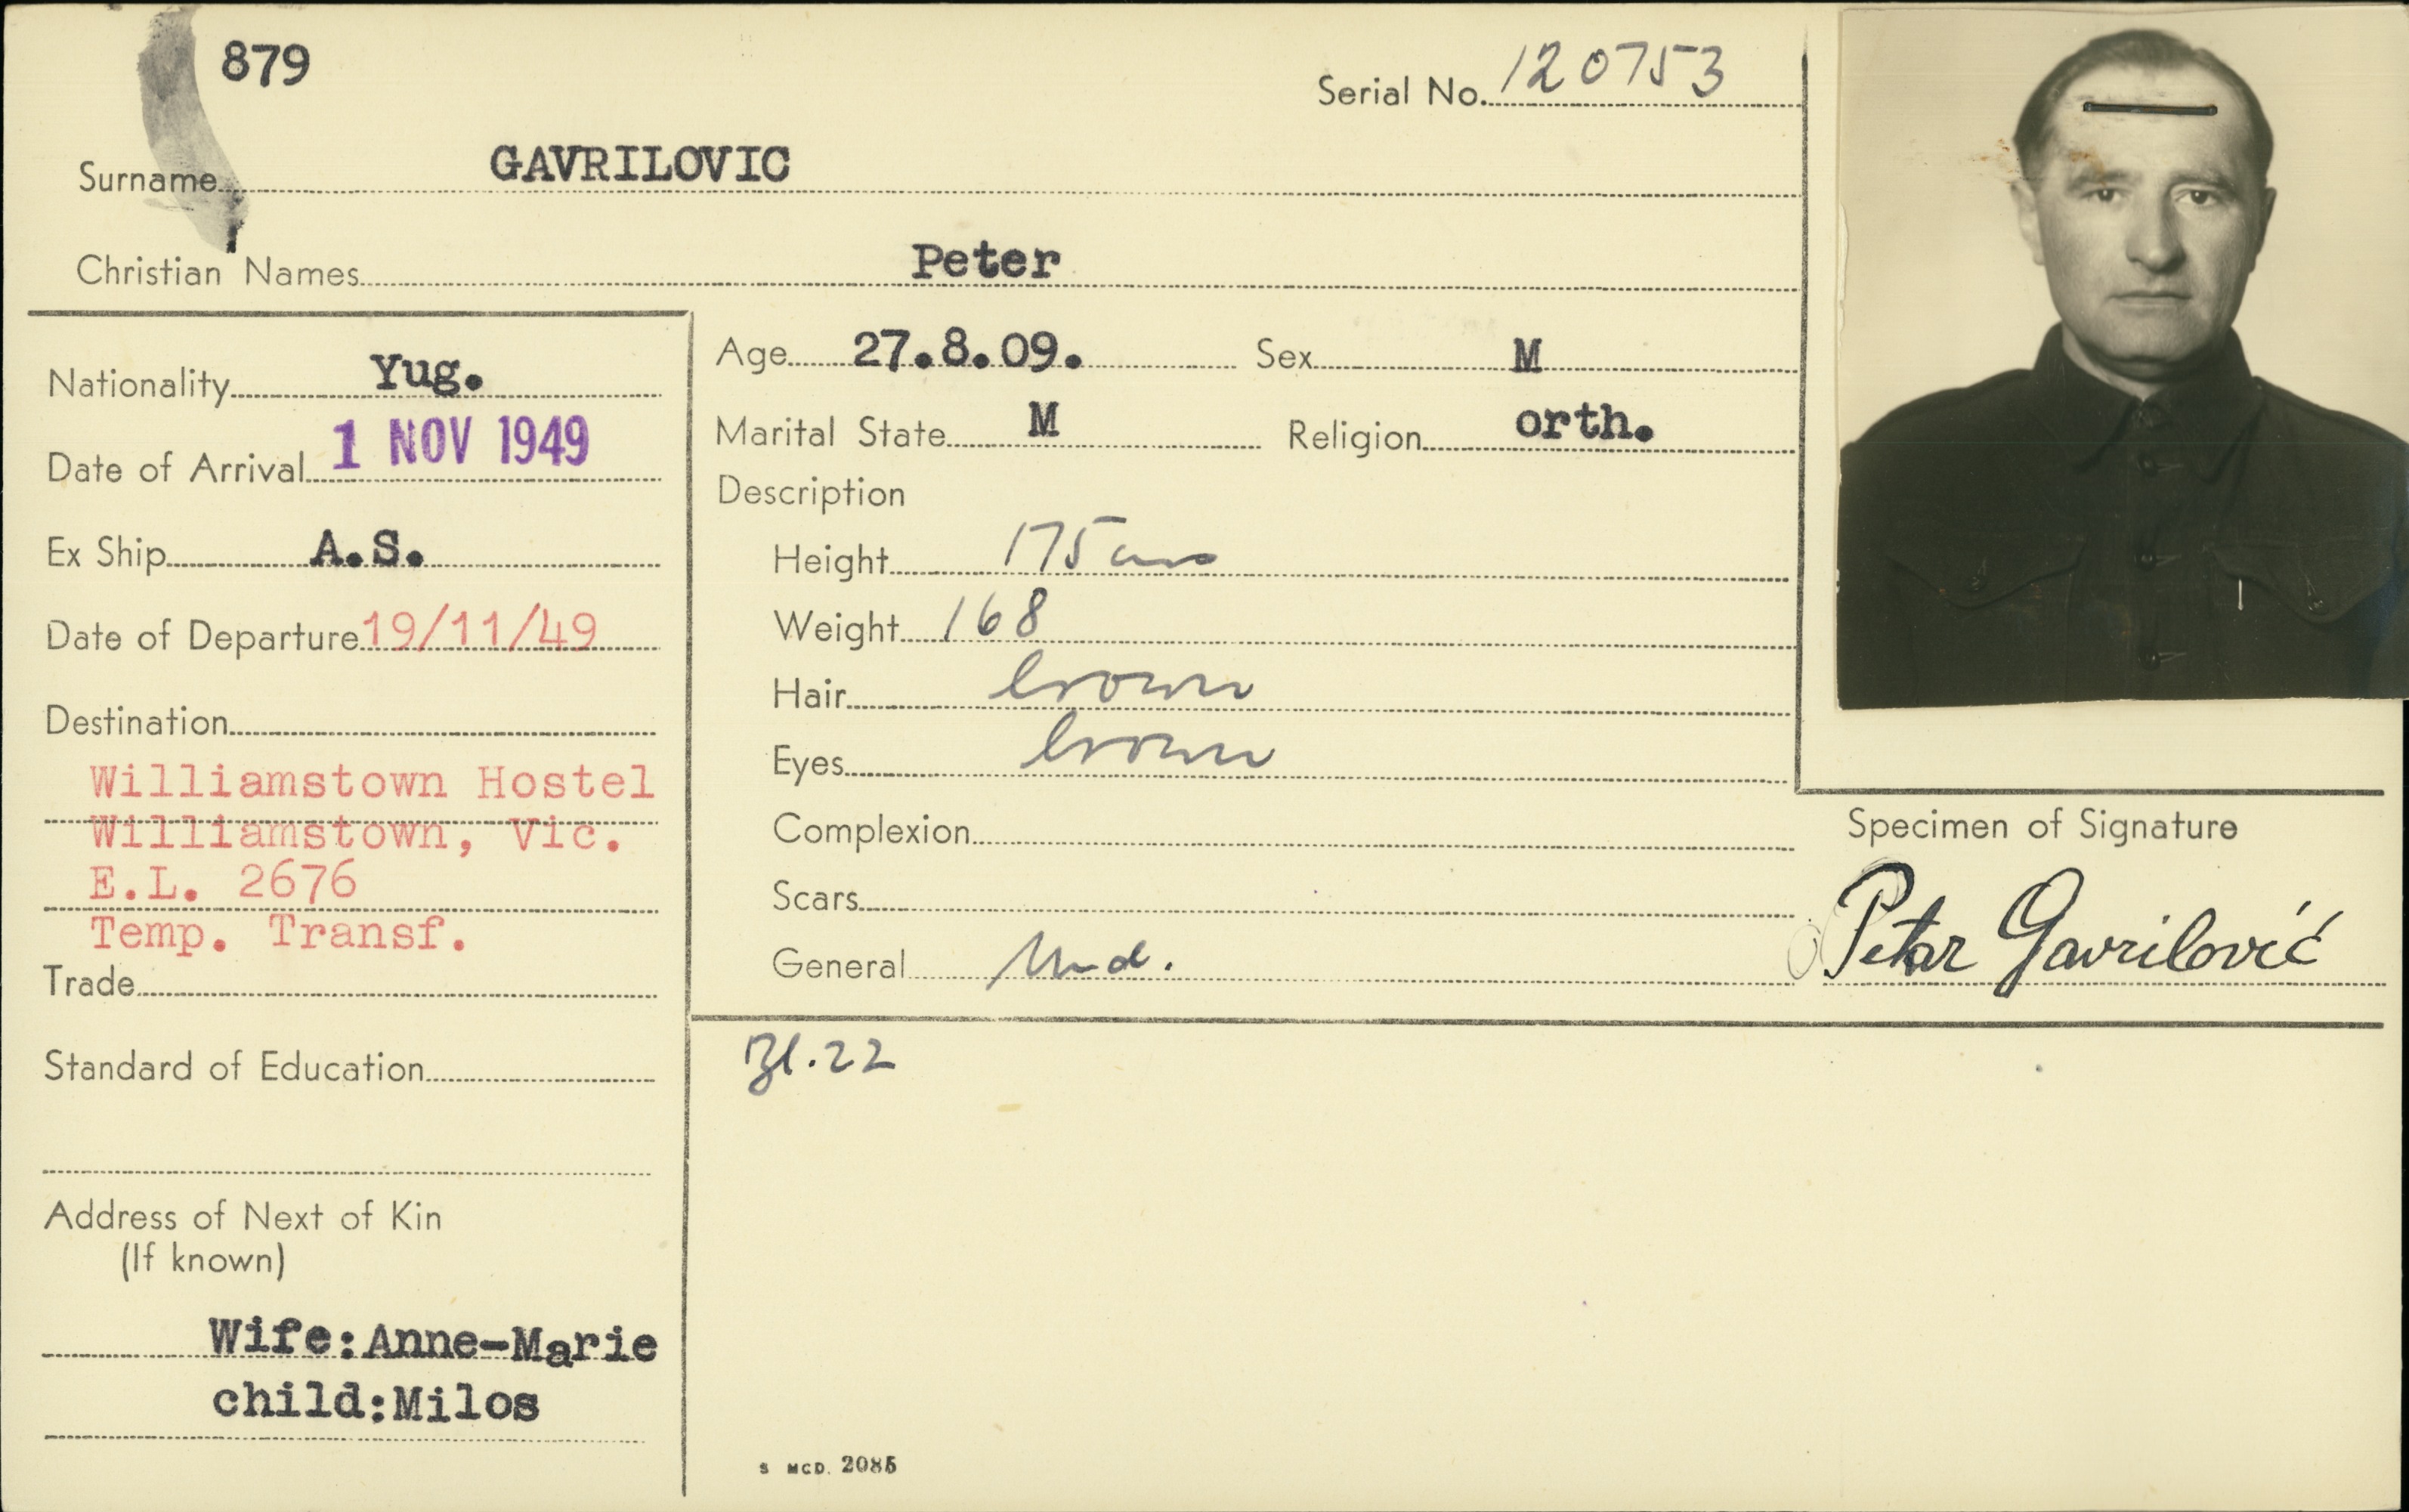 879
Serial No. 120753
Surname GAVRILOVIC
Christian Names Peter
Nationality Yug.
Date of Arrival 1 NOV 1949
Ex Ship A.S.
Date of Departure 19/11/49
Destination
Williamstown Hostel
Williamstown, Vic.
E.L. 2676
Temp. Transf.
Trade
Standard of Education
Address of Next of Kin
(If known)
Wife:Anne-Marie
child:Milos
Age 27.8.09. Sex M
Marital State M Religion orth.
Description
Height 175 cms
Weight 168
Hair brown
Eyes brown
Complexion
Scars
General Med.
Bl.22
S MCD. 2085
Specimen of Signature
Petar Gavrilović